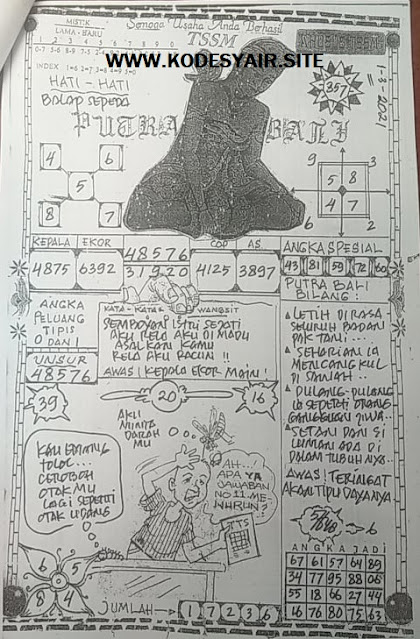 Semoga Usaha Anda Berhasil
MISTIK
LAMA - BARU
1 2 3 4 5 6 7 8 9 0
TSSM
INDEX 1=6 2=7 3=8 4=9 5=0
WWW.KODESYAIR.SITE
HATI - HATI
BALAP SEPEDA
357
1-3-2021
PUTRA BALI
4 6
5
8 7
9 3
5 8
4 7
6 2
KEPALA EKOR
4875 6392
48576
31920
COP AS
4125 3897
ANGKA SPESIAL
43 81 59 72 60
ANGKA
PELUANG
TIPIS
0 DAN 1
UNSUR
48576
KATA - KATA WANGSIT
SEMBOYAN ISTRI SEJATI
AKU RELA AKU DI MADU
ASALKAN KAMU
RELA AKU RACUN !!
AWAS ! KEPALA EKOR MAIN !
PUTRA BALI
BILANG :
LETIH DI RASA
SELURUH BADAN
PAK TANI ...
SEHARIAN IA
MENCANGKUL
DI SAWAH ..
PULANG-PULANG
IA SEPERTI ORANG
GANGGUAN JIWA ..
SETAN DAN SI
LUMAN ADA DI
DALAM TUBUHNYA ..
AWAS ! TERINGAT
AKAN TIPU DAYANYA
39
20
16
KAU EMANG
TOLOL ...
CEROBOH
OTAK MU
LAGI SEPERTI
OTAK UDANG
AKU
MINTA
DARAH
MU
AH..
APA YA
JAWABAN
NO 11 ME-
NURUN ?
TTS
6 5
8 4
JUMLAH → 1 7 2 3 6
ANGKA JADI
67 61 57 64 89
34 77 95 88 06
55 18 66 27 44
16 76 80 75 63